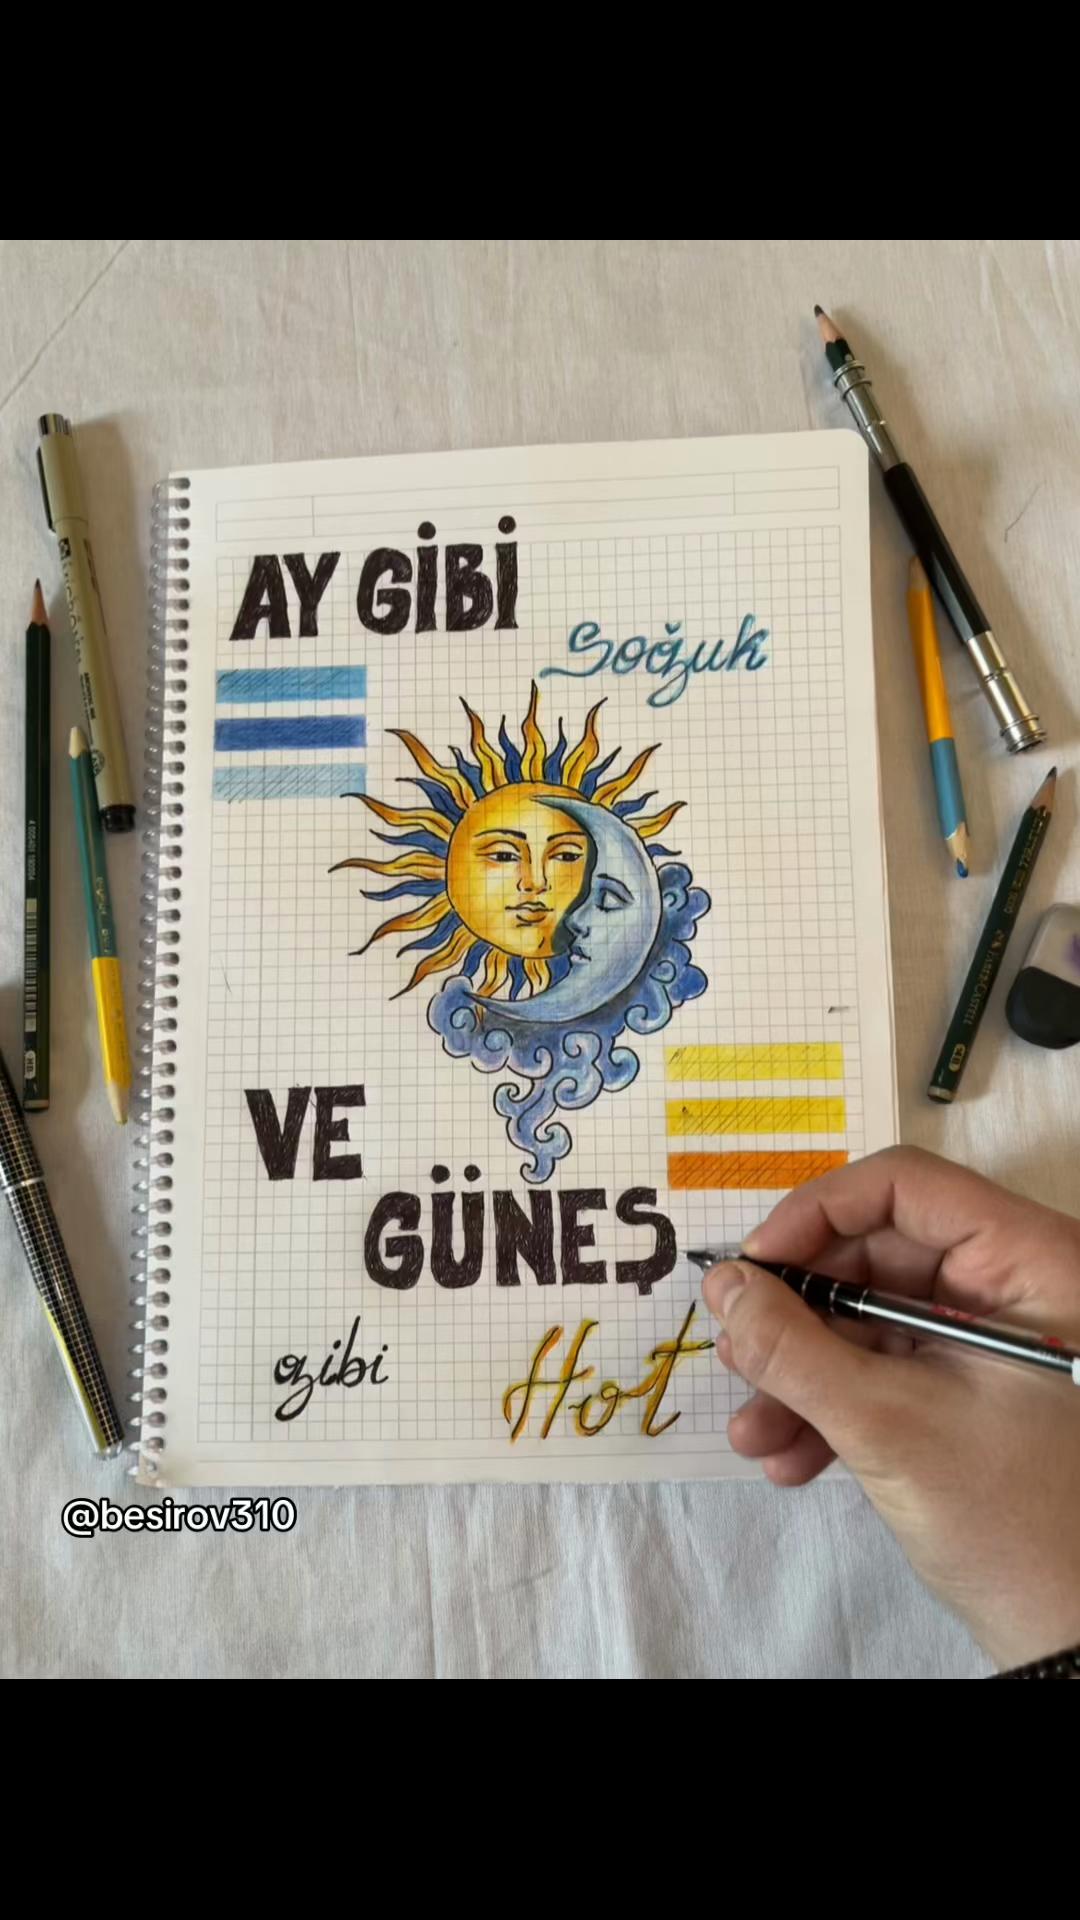 AY GİBİ
Soğuk
VE
GÜNEŞ
gibi
Hot
@besirov310